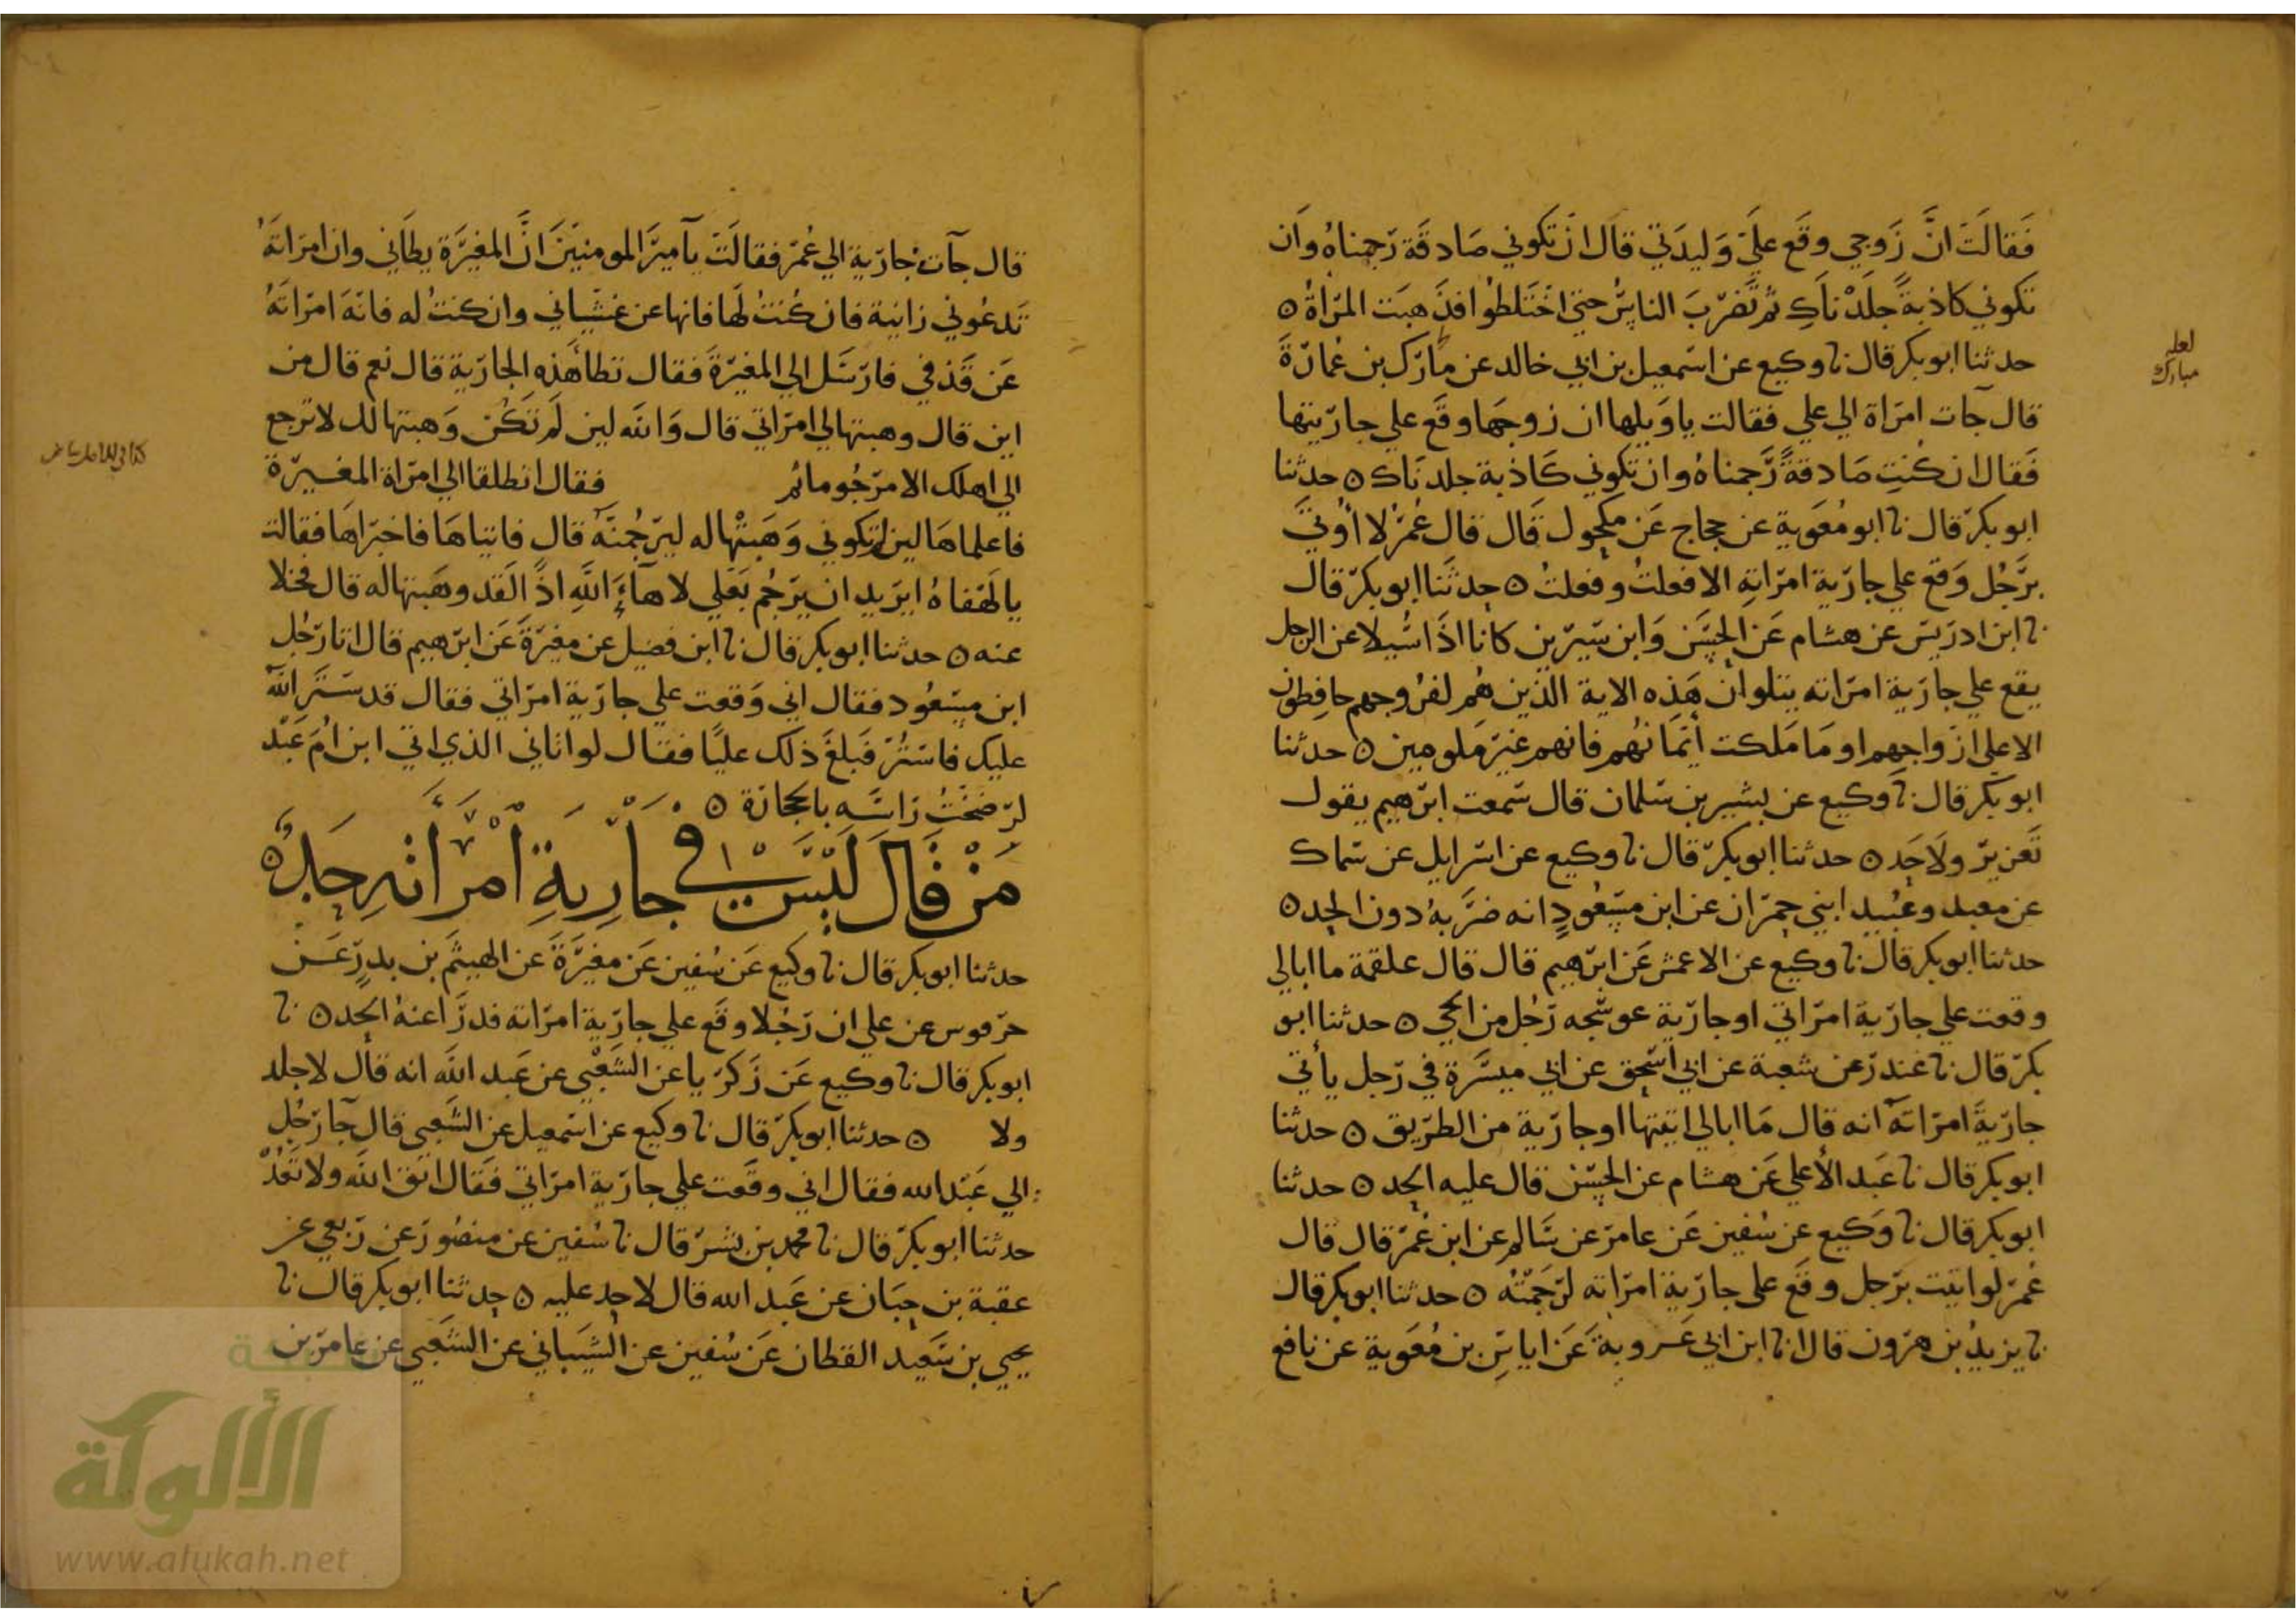 فَقالَت انَّ زَوجي وقَع علَي وَليدَتي قال ان تكوني صَادقَة رَجمناهُ وان
تكوني كاذبةً جلَدْناكِ ثم تَضرّبَ الناسُ حتى اختَلطُوا فذَهبَت المرَأةُ ○
حدثنا ابو بكر قال نا وكيع عن اسمعيل بن ابي خالد عن مارك بن عُمارَةَ
قال جآت امرَاة الي علي فقالت ياوَيلها ان زوجَها وقَع علي جاريتها
فَقال ان كُنتِ صَادقةً رَّجمناهُ وان تكوني كَاذبة جلدنَاك ○ حدثنا
ابو بكر قال نا ابو مُعَوية عن حجاج عَن مكحول قال قال عُمَرُ لا أُوتيَ
برَجُل وَقع علي جارَية امرَاتِهِ الا فعلتُ وفعلتُ ○ حدثَنا ابو بكر قال
نا ابن ادريَس عن هشام عَن الحسَن وَابن سيرين كانا اذَا سُيلا عن الرجل
يقع علي جارَية امرَاته يتلوان هَذِه الاية الذين هُم لفرُوجهم حافِظون
الا علي ازواجهم او مَا مَلكت أيمَانُهُم فانهم غيَر مَلومين ○ حدثنا
ابو بكر قال نا وكيع عن بشير بن سَلمان قال سَمعت ابرَهيم يقول
تَعزير ولَاحَد ○ حدثنا ابو بكر قال نا وكيع عن اسرايل عن سماك
عن معبد وعُبيد ابني حمرَان عن ابن مسعُودٍ انه ضَرَبهُ دون الحد ○
حدثنا ابو بكر قال نا وكيع عن الاعمش عَن ابرَهيم قال قال علقمة ما ابالي
وقعت علي جارَية امرَاتي او جارَية عوسَجه رَجُل من الحي ○ حدثنا ابو
بكر قال نا غندر عن شعبة عن ابي اسحق عن ابي ميسَرة في رَجل يأتي
جارَيةَ امرَاته انه قال مَا ابالي اتيتها او جارَية من الطرَيق ○ حدثنا
ابو بكر قال نا عَبد الأعلي عَن هشام عن الحسَن قال عليه الحد ○ حدثنا
ابو بكر قال نا وَكيع عن سُفين عَن عامر عن سَالم عن ابن عُمَر قال قال
عُمَر لو اتيت برَجل وقَع علي جارَية امرَاته لرَجَمْتُه ○ حدثنا ابو بكر قال
نا يزيدُ بن هرون قال انا ابن ابي عَروبةَ عَن اياس بن مُعَوية عن نافع
لعله
مبارك
قال جآت جارَية الي عُمَر فقالَت يآ ميرَ المومنيَن انَّ المغيَرة يطأَني وان امرَاتَهُ
تَدعُوني زانية فان كُنتُ لَها فانها عن غشَياني وان كنتُ له فانَهَ امرَاتَهُ
عَن قَذفي فارسَل الي المغيَرةَ فقال تطأ هَذه الجارَية قال نعم قال من
اين قال وهبتها لي امرَاتي قال وَالله لين لَم تكُن وَهبتها لك لا ترجع
الي اهلك الا مرَجُوما ثم فقال انطلقا الي امرَاة المغيرَة
فاعلماها لين لم تكوني وَهَبتْها له ليرَجُمنّهُ قال فاتياهَا فاخبرَاهَا فقالت
يالَهَفَاهُ ايرَيد ان يرَجُم بَعلي لا هاءَ اللَّهِ اذًا لَقَد وهَبتها له قال فخلا
عنه ○ حدثنا ابو بكر قال نا ابن فضيل عن مغيرَةَ عَن ابرَهيم قال اتا رَجُل
ابن مسَعُود فقال اني وَقعت علي جارَية امرَاتي فقال قد سَتَرَ اللَّهُ
عليك فاستَتُر فَبلغَ ذلك عليًا فقال لو اتاني الذي اتي ابن أُم عَبْد
لرَضَخْتُ رَاسَه بالحجَارَة ○
مَنْ قَالَ لَيْسَ فِي جَارِيةِ امْرَأتهِ حَدٌّ ○
حدثنا ابو بكر قال نا وكيع عَن سُفين عَن مغيَرَةَ عن الهيثَم بن بدرٍ عَن
حرَقوس عن علي ان رَجُلا وقَع علي جارَية امرَاته فدرَأ عنهُ الحد ○ نا
ابو بكر قال نا وكيع عَن زَكرَيا عن الشَعْبي عن عَبد الله انه قال لا جلد
ولا ○ حدثنا ابو بكر قال نا وكيع عن اسمعيل عن الشَعبي قال جآ رَجُل
الي عَبْد الله فقال اني وقَعت علي جارَية امرَاتي فَقال اتق الله ولا تَعُدْ
حدثنا ابو بكر قال نا محمد بن بشر قال نا سُفين عن منصُور عن رَبعي عن
عقبة بن جبَان عن عَبد الله قال لا حد عليه ○ حدثنا ابو بكر قال نا
يحيي بن سَعيد القطان عَن سُفين عن الشَيباني عن الشَعبي عن عامر بن
الألوكة
www.alukah.net